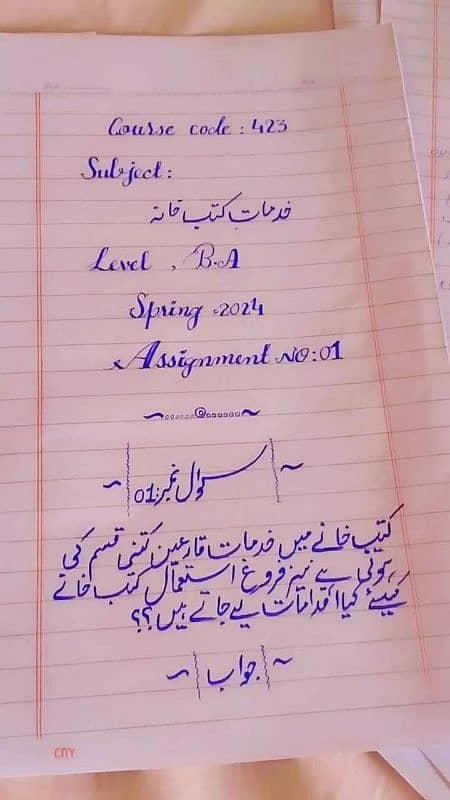 Course code : 423
Subject :
خدمات کتب خانہ
Level , B.A
Spring -2024
Assignment NO:01
سوال نمبر:01
کتب خانے میں خدمات قارعین کتنی قسم کی
ہوتی ہے نیز فروغ استعمال کتب خانے
کیلئے کیا اقدامات لیے جاتے ہیں؟؟
جواب
CITY